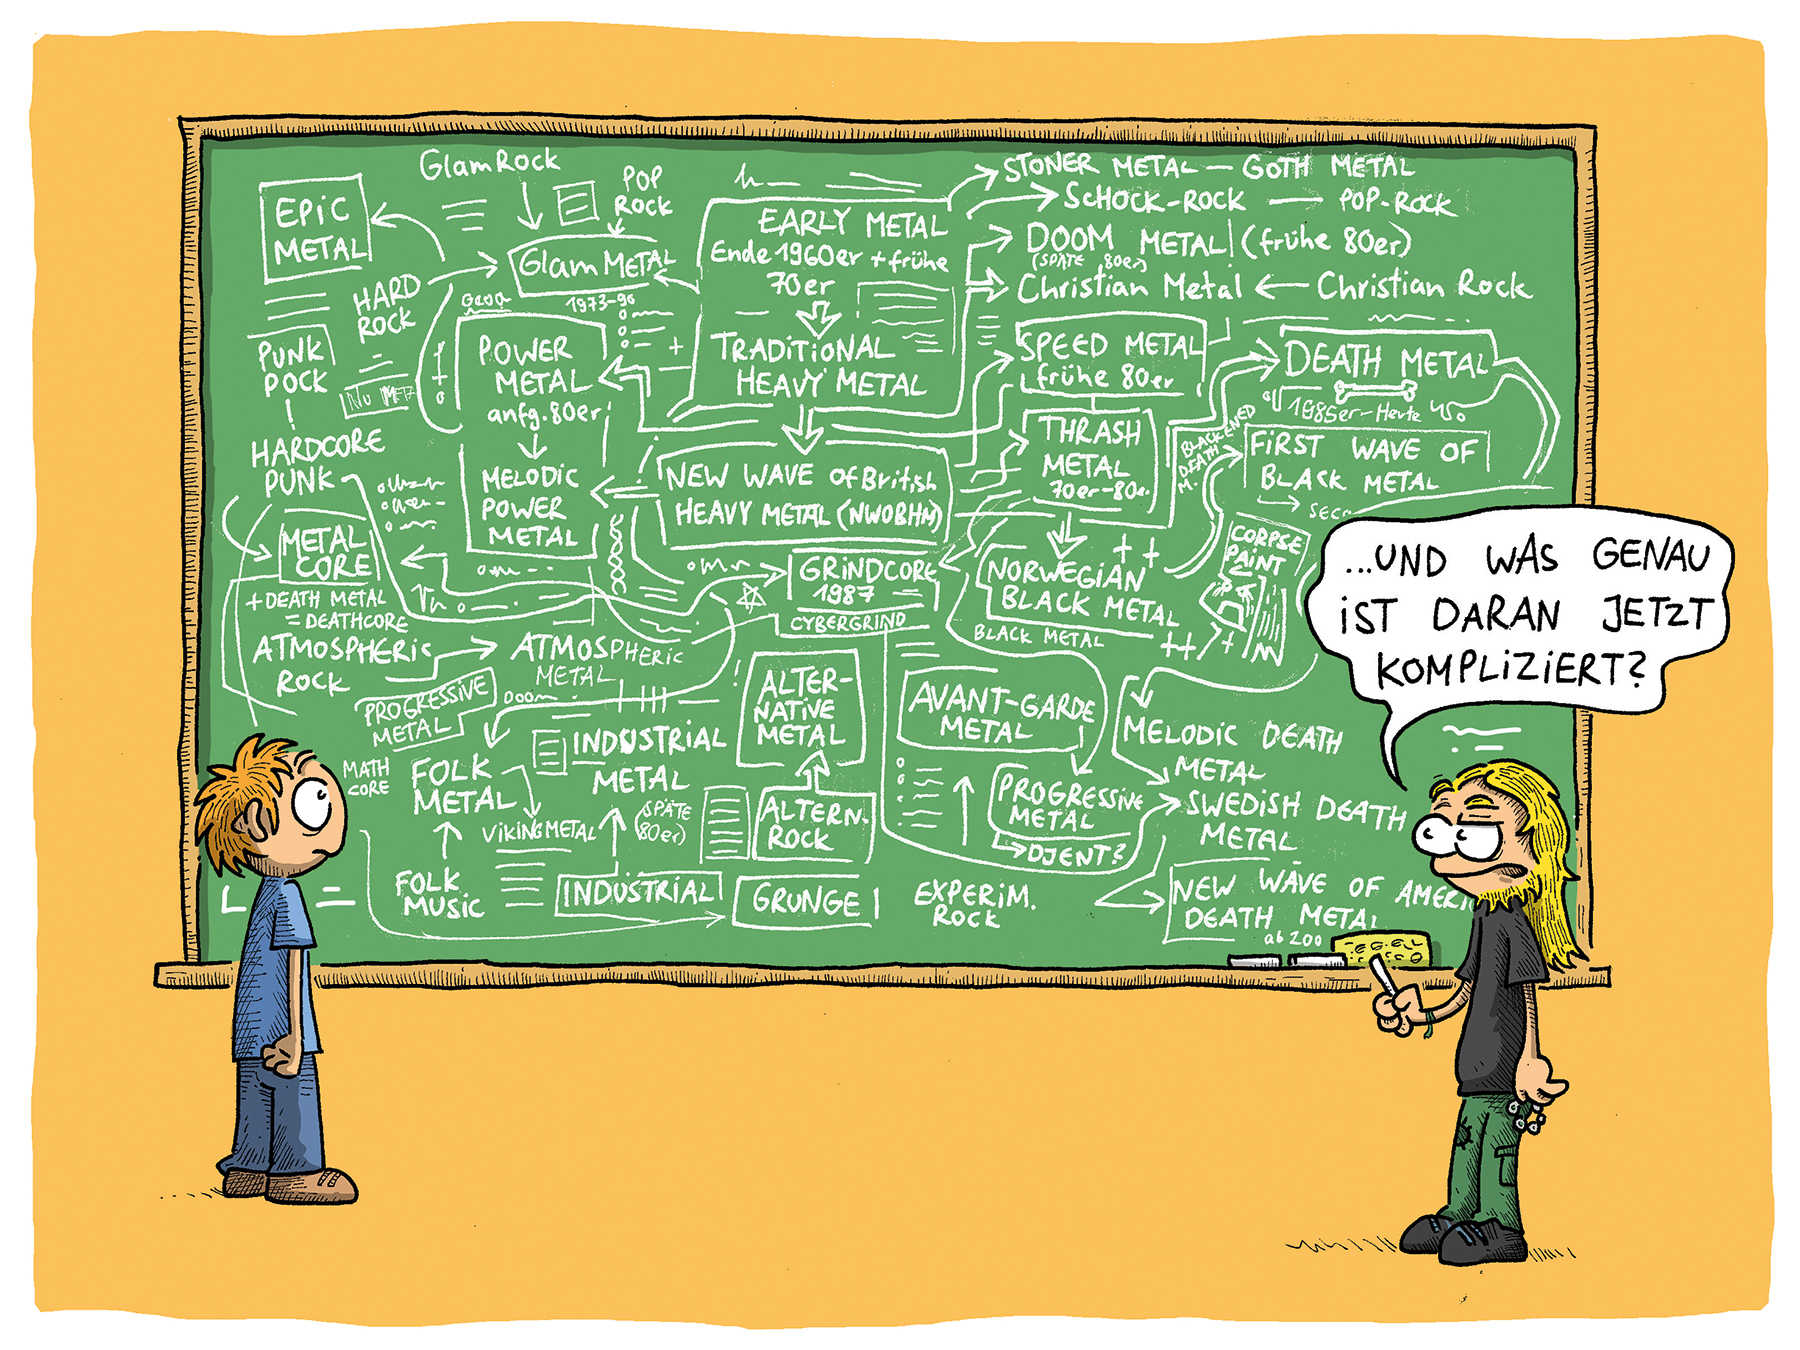 GlamRock
POP
ROCK
EPIC
METAL
HARD
ROCK
Glam METAL
1973-90
EARLY METAL
Ende 1960er + frühe
70er
TRADITIONAL
HEAVY METAL
STONER METAL — GOTH METAL
SCHOCK-ROCK → POP-ROCK
DOOM METAL (frühe 80er)
(SPÄTE 80er)
Christian Metal ← Christian Rock
PUNK
POCK
NU
HARDCORE
PUNK
POWER
METAL
anfg. 80er
MELODIC
POWER
METAL
NEW WAVE of British
HEAVY METAL (NWOBHM)
SPEED METAL
frühe 80er
THRASH
METAL
70er-80er
DEATH METAL
1985er-Heute
BLACKENED
DEATH
M.
FIRST WAVE OF
BLACK METAL
METAL
CORE
+ DEATH METAL
= DEATHCORE
GRINDCORE
1987
CYBERGRIND
NORWEGIAN
BLACK METAL
BLACK METAL
CORPSE
PAINT
ATMOSPHERIC
ROCK
ATMOSPHERIC
METAL
PROGRESSIVE
METAL
DOOM
MATH
CORE
FOLK
METAL
VIKING METAL
FOLK
MUSIC
INDUSTRIAL
METAL
(SPÄTE
80er)
INDUSTRIAL
ALTER-
NATIVE
METAL
ALTERN.
ROCK
GRUNGE
AVANT-GARDE
METAL
PROGRESSIVE
METAL
DJENT?
EXPERIM.
ROCK
MELODIC DEATH
METAL
SWEDISH DEATH
METAL
NEW WAVE OF AMERI
DEATH METAL
ab 200
...UND WAS GENAU
IST DARAN JETZT
KOMPLIZIERT?